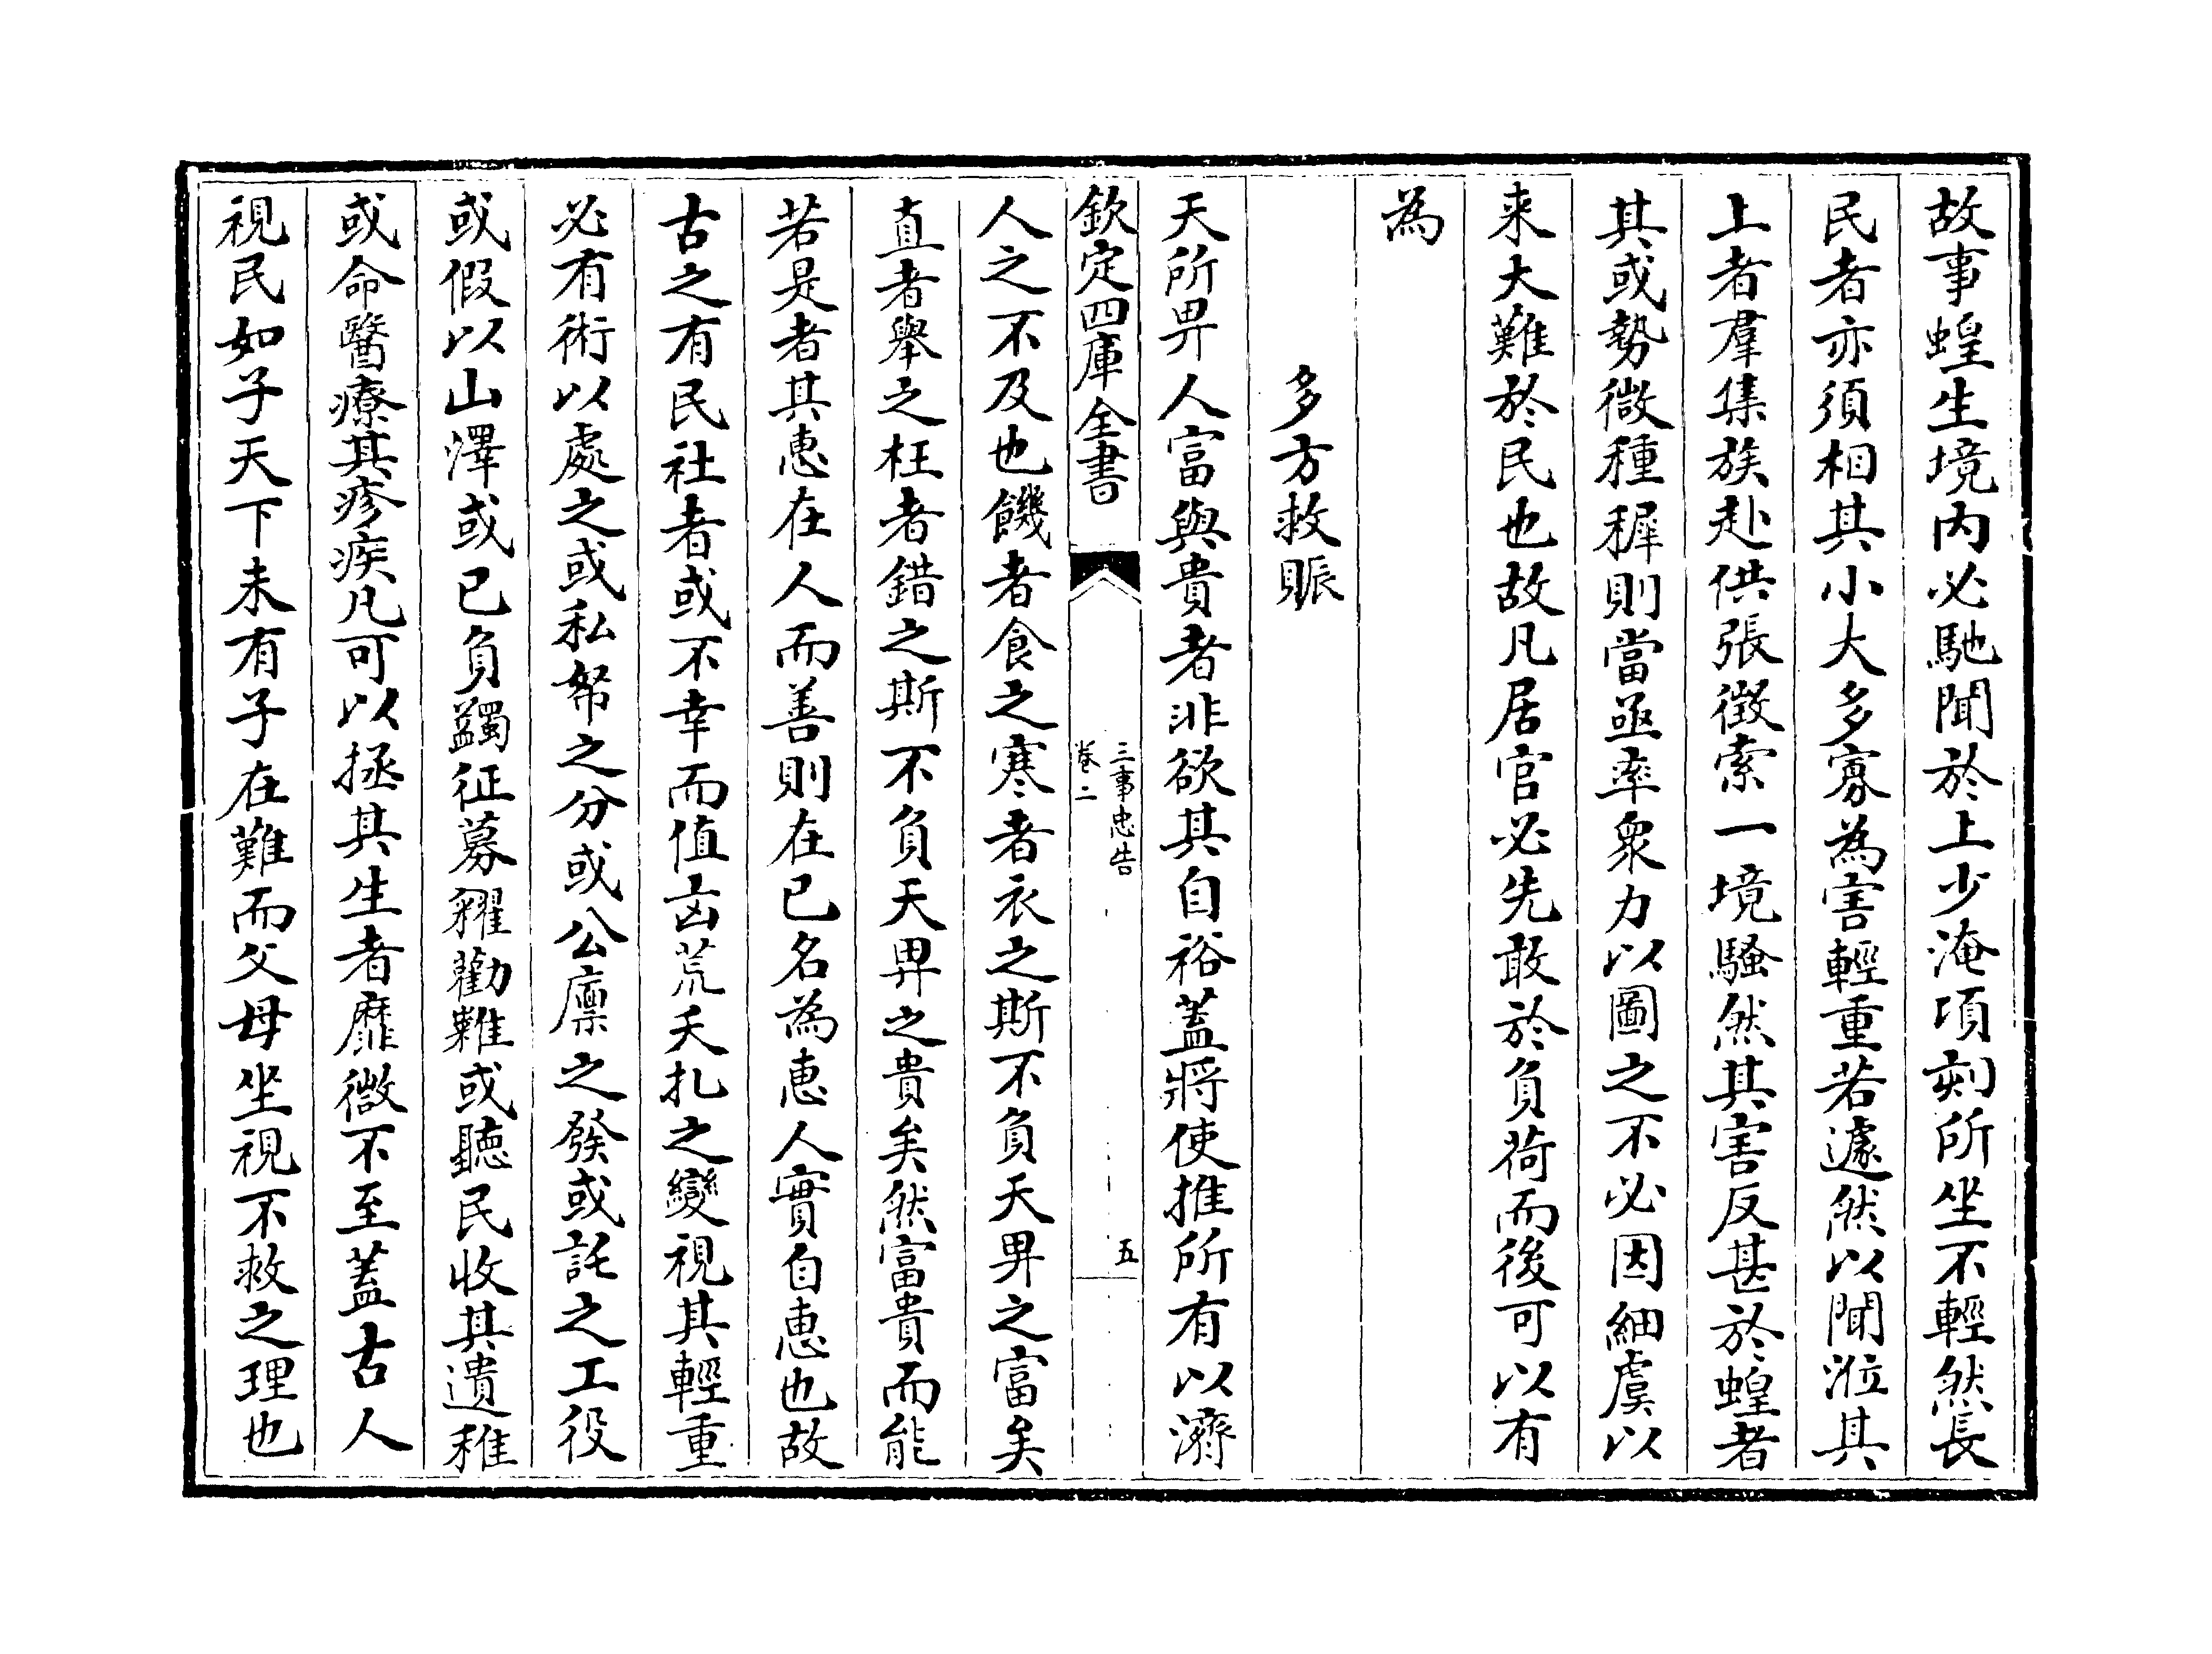 故事蝗生境内必馳聞於上少淹項刻所坐不輕然長
民者亦須相其小大多寡為害輕重若遽然以聞涖其
上者羣集族赴供張徴索一境騷然其害反甚於蝗者
其或勢微種穉則當亟率衆力以圖之不必因細虞以
来大難於民也故凡居官必先敢於負荷而後可以有
為
多方救賑
天所畀人富與貴者非欲其自裕蓋將使推所有以濟
欽定四庫全書
三事忠告
卷二
五
人之不及也饑者食之寒者衣之斯不負天畀之富矣
直者舉之枉者錯之斯不負天畀之貴矣然富貴而能
若是者其惠在人而善則在已名為惠人實自惠也故
古之有民社者或不幸而值凶荒夭札之變視其輕重
必有術以處之或私帑之分或公廩之發或託之工役
或假以山澤或已負蠲征募糴勸難或聽民收其遺稚
或命醫療其疹疾凡可以拯其生者靡微不至蓋古人
視民如子天下未有子在難而父母坐視不救之理也